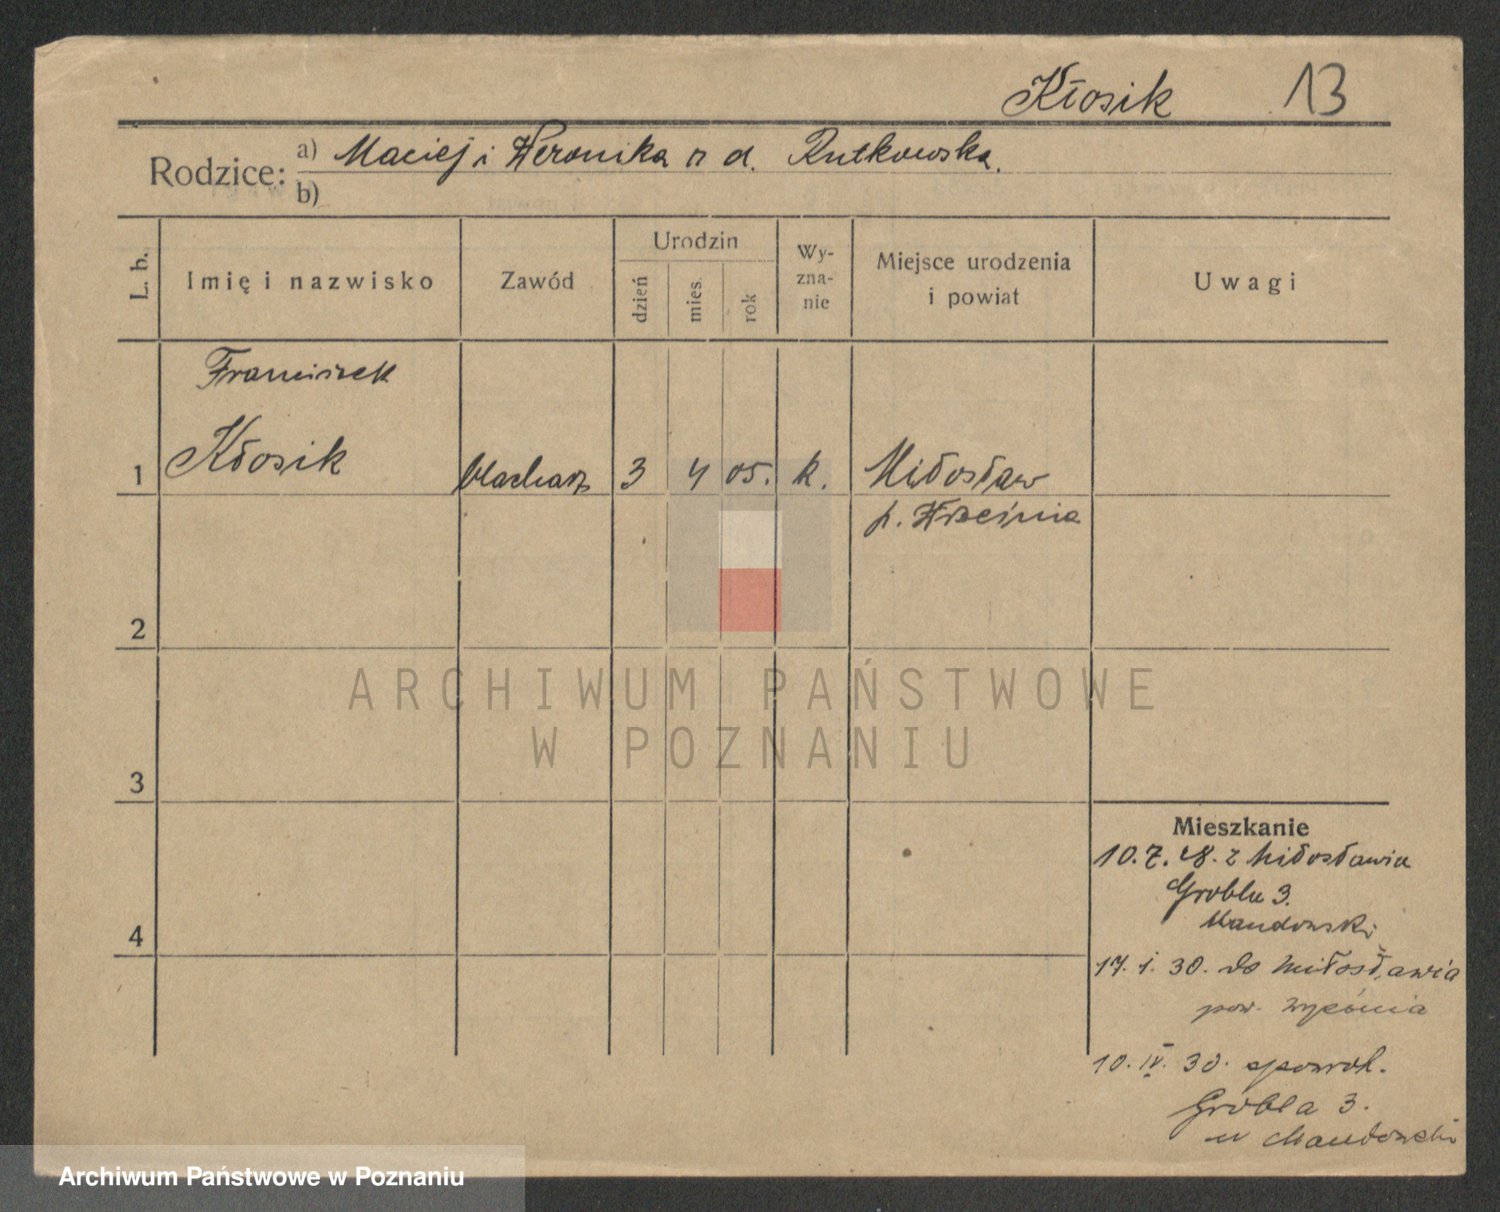 Kłosik 13
Rodzice: a) Maciej i Weronika z d. Rutkowska.
b)
L. b. Imię i nazwisko Zawód Urodzin dzień mies. rok Wyznanie Miejsce urodzenia i powiat Uwagi
Franciszek
1 Kłosik 3 4 05. k. Miłosław
p. Września
2
ARCHIWUM PAŃSTWOWE
W POZNANIU
3
Mieszkanie
10.7.28. z Miłosławia
Grobla 3.
4
17. 1. 30. do Miłosławia
pow.
10. IV. 30. spowrot.
Grobla 3.
Archiwum Państwowe w Poznaniu